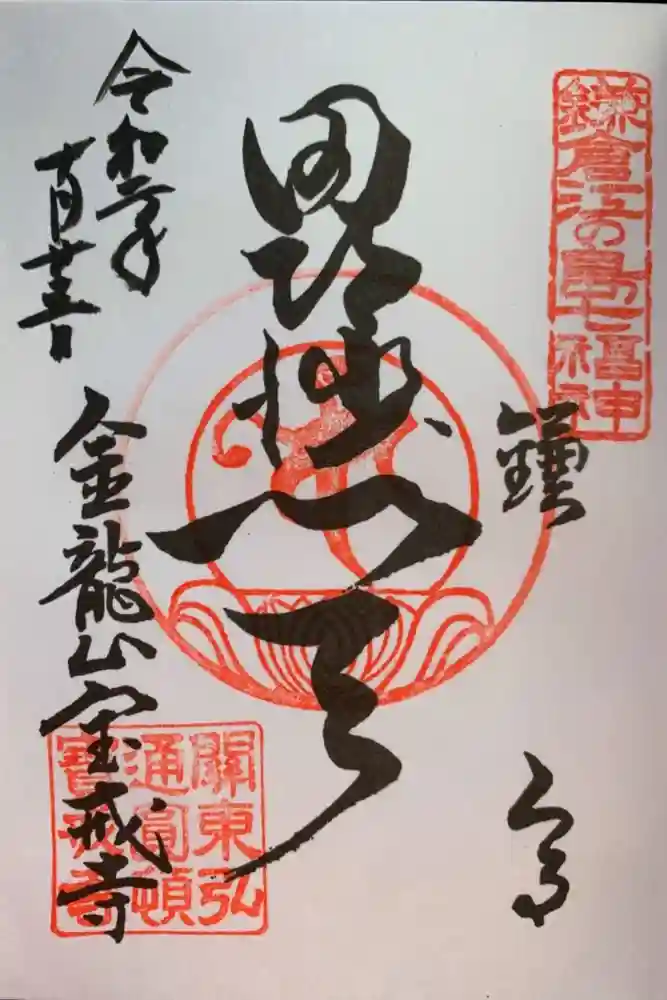 鎌倉江の島七福神
鎌倉
毘沙門天
令和二年
十一月廿五日
金龍山宝戒寺
關東弘
通圓頓
寳戒寺